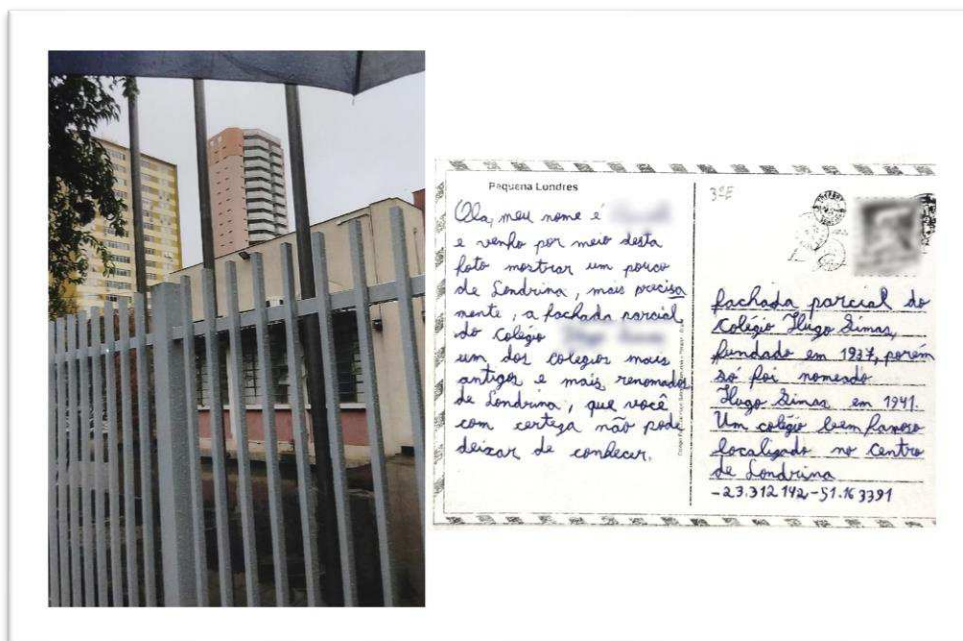 Pequena Londres
Ola, meu nome é
e venho por meio desta
foto mostrar um pouco
de Londrina, mais precisa
mente, a fachada parcial
do Colégio
um dos colegios mais
antigos e mais renomados
de Londrina, que você
com certeza não pode
deixar de conhecer.
3ºE
fachada parcial do
Colégio Hugo Simas,
fundado em 1937, porém
só foi nomeado
Hugo Simas em 1941.
Um colégio bem famoso
localizado no centro
de Londrina
-23.312142,-51.163391